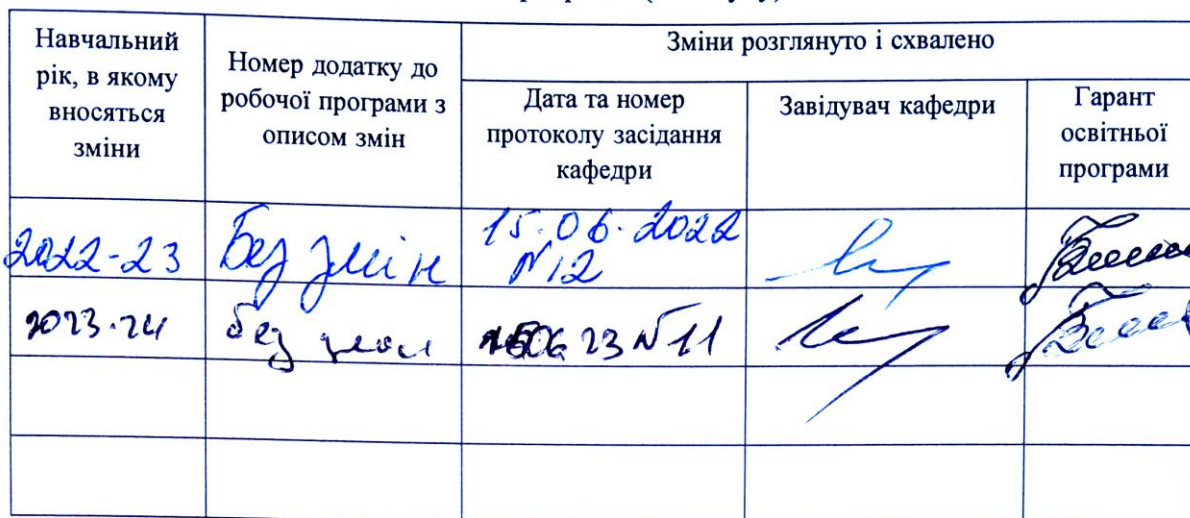 Навчальний
рік, в якому
вносяться
зміни
Номер додатку до
робочої програми з
описом змін
Зміни розглянуто і схвалено
Дата та номер
протоколу засідання
кафедри
Завідувач кафедри
Гарант
освітньої
програми
2022-23
Без змін
15.06.2022
№12
2023-24
без змін
23 №11